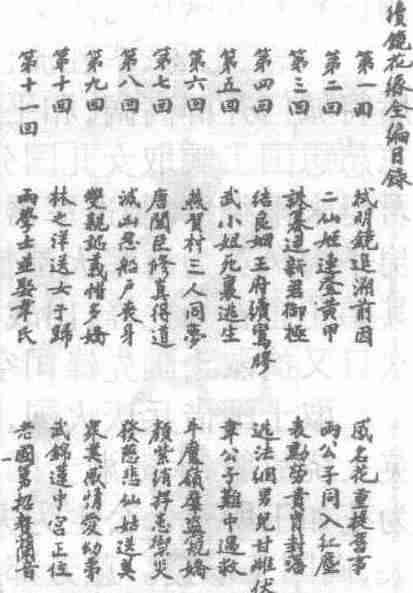 續鏡花緣全編目錄
第一回 拭明鏡追溯前因 感名花重提舊事
第二回 二仙姬連登黃甲 兩公子同入紅塵
第三回 誅暴逆新君御極 表勳勞書頁封洛
第四回 結良姻王府續鸞膠 逃法網男兒甘雌伏
第五回 武小姐死裏逃生 韋公子難中遇救
第六回 義賢村三人同夢 平麾嶺羣盜競嬌
第七回 唐閨臣修真得道 顏紫綃捍患禦災
第八回 滅凶惡船戶喪身 發慈悲仙姑送美
第九回 雙親誕義惜多嬌 眾美感情愛幼弟
第十回 林之洋送女于歸 武錦蓮中宮正位
第十一回 兩學士並娶韋氏 老國舅招贅蘭音